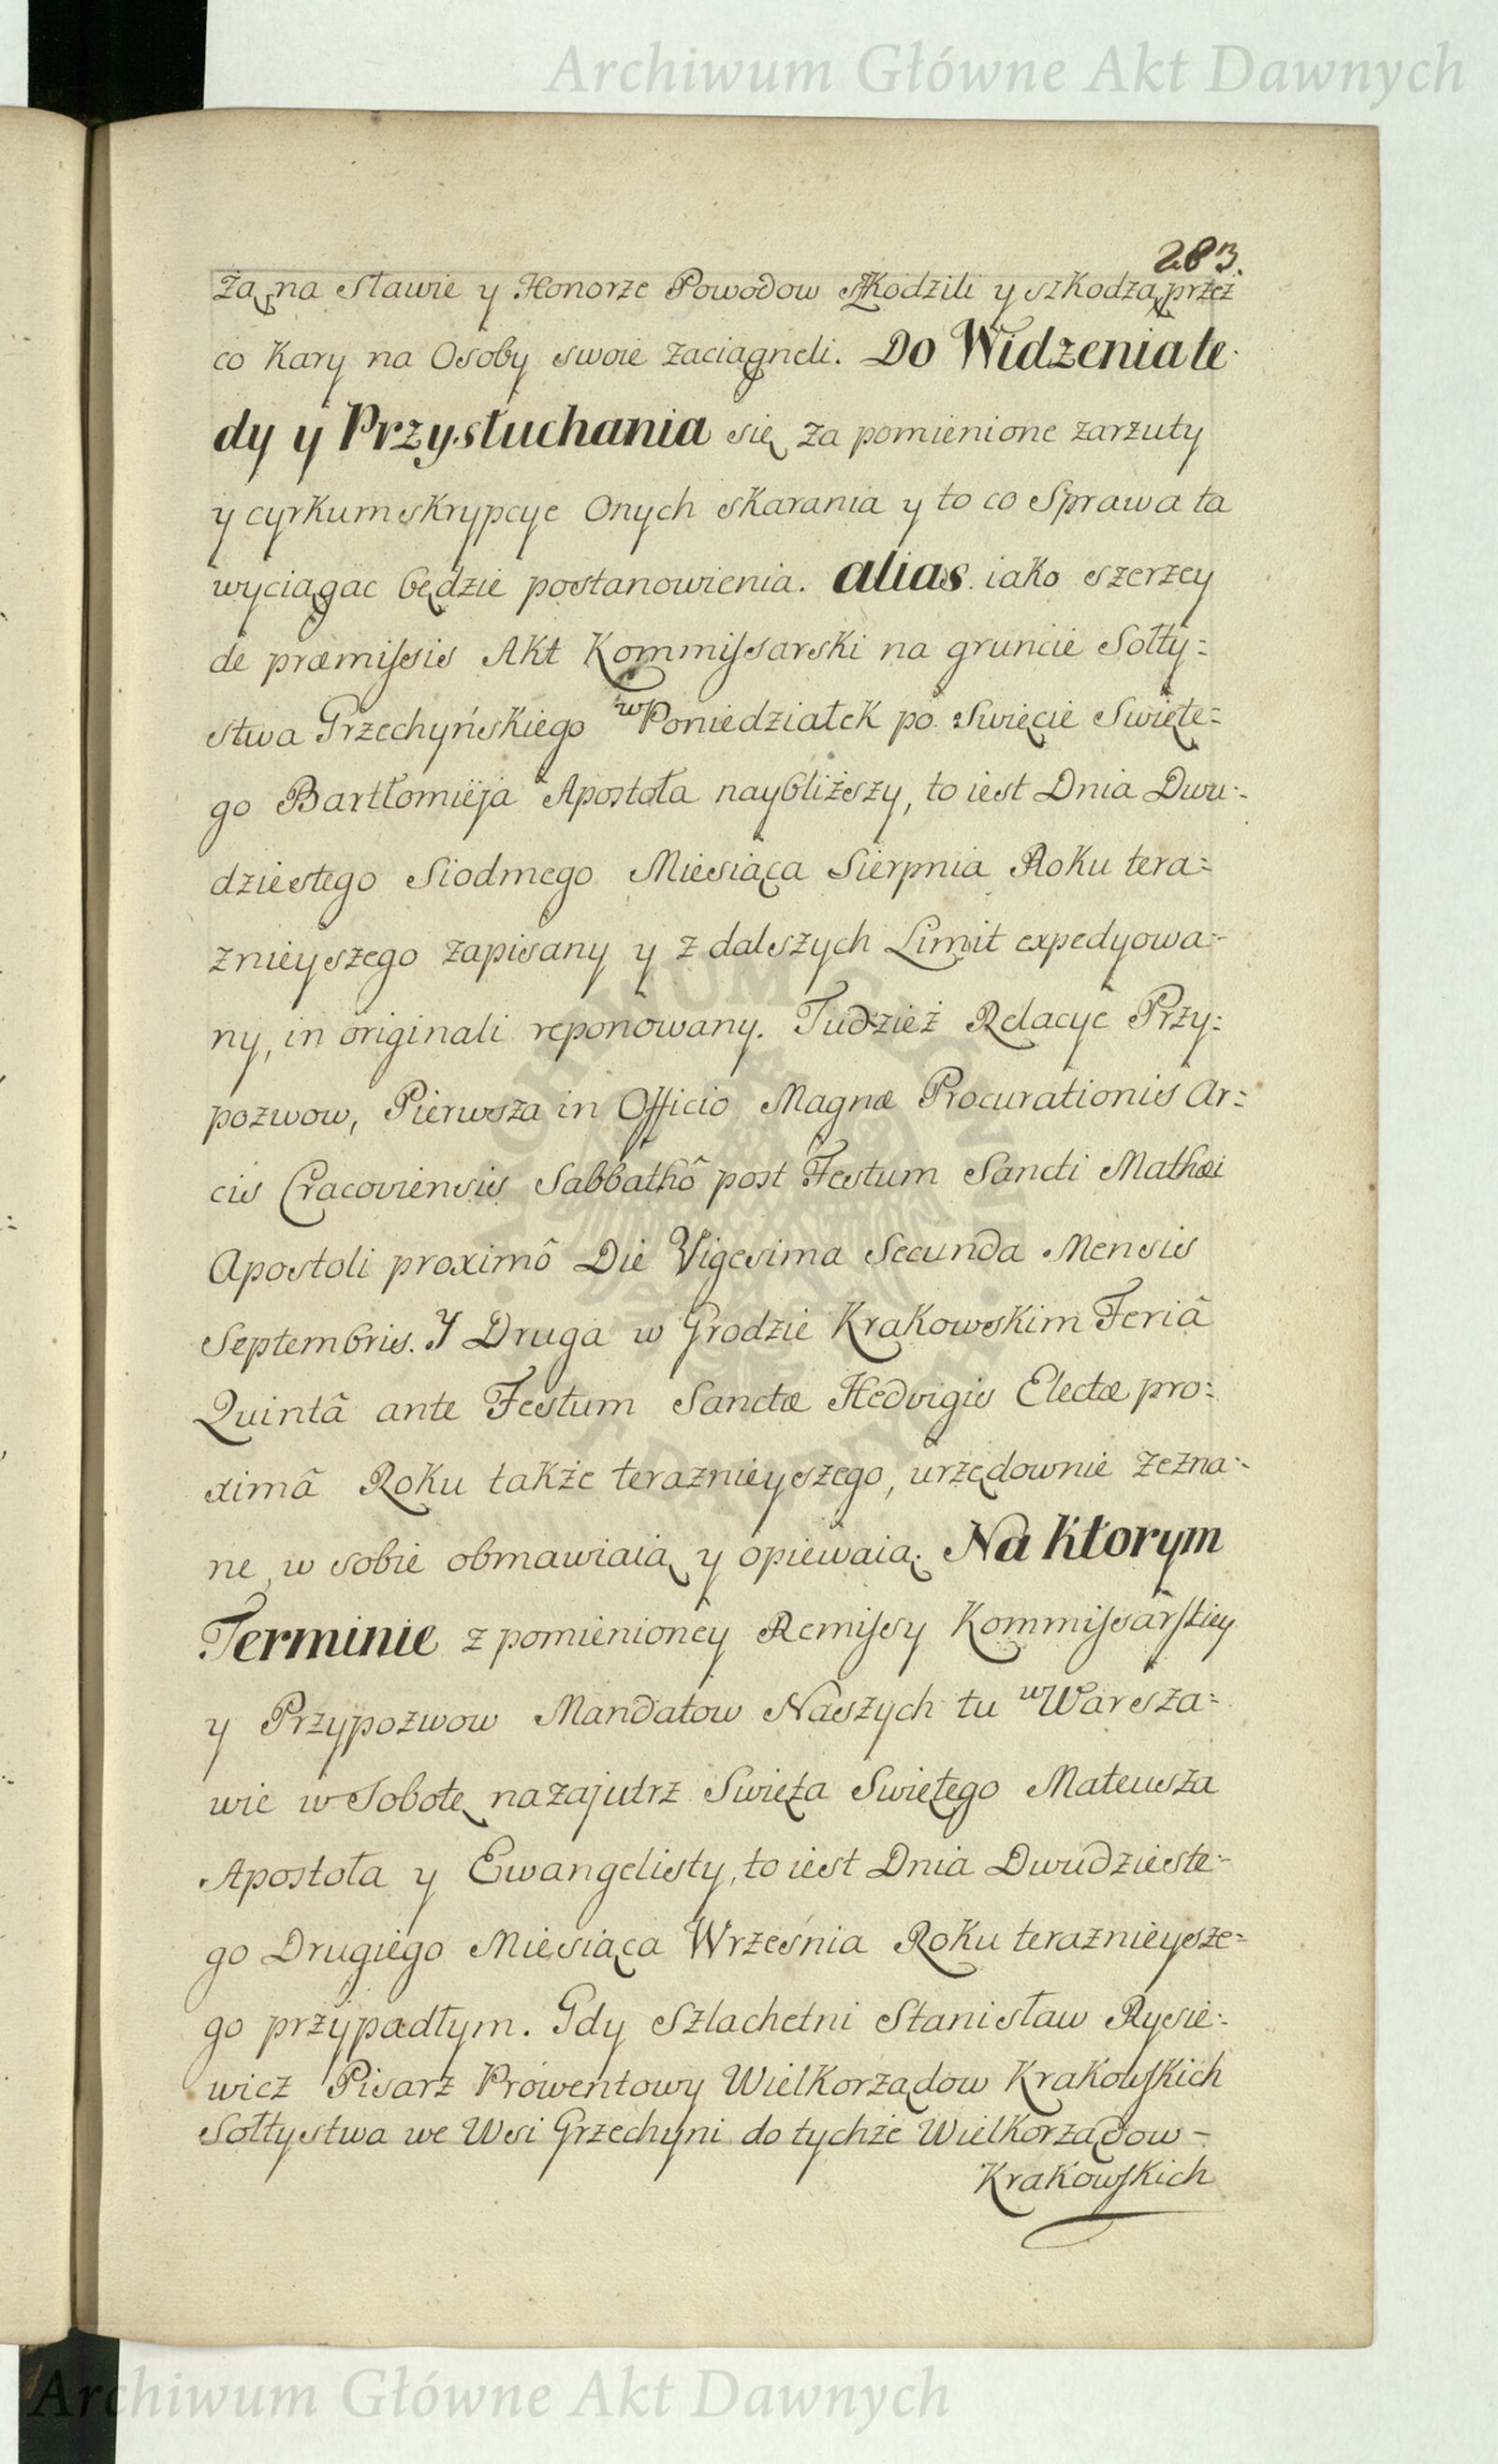 Archiwum Główne Akt Dawnych
283.
żą na sławie y Honorze Powodow szkodzili y szkodzą przez
co Kary na Osoby swoie zaciągneli. Do Widzenia te-
dy y Przysłuchania się za pomienione zarzuty
y cyrkumskrypcye Onych skarania y to co Sprawa ta
wyciągac będzie postanowienia. alias iako szerzey
de præmissis Akt Kommissarski na gruncie Sołty=
stwa Grzechyńskiego w Poniedziałek po Swięcie Swięte=
go Bartłomieja Apostoła naybliższy, to iest Dnia Dwu-
dziestego Siodmego Miesiąca Sierpnia Roku tera=
znieyszego zapisany y z dalszych Limit expedyowa=
ny, in originali reponowany. Tudzież Relacye Przy=
pozwow, Pierwsza in Officio Magnæ Procurationis Ar=
cis Cracoviensis Sabbathô post Festum Sancti Mathæi
Apostoli proximô Die Vigesima Secunda Mensis
Septembris. Y Druga w Grodzie Krakowskim Feriâ
Quintâ ante Festum Sanctæ Hedvigis Electæ pro=
ximâ Roku także teraznieyszego, urzędownie zezna=
ne, w sobie obmawiaią y opiewaią. Na Ktorym
Terminie z pomienioney Remissy Kommissarskiey
y Przypozwow Mandatow Naszych tu w Warsza=
wie w Sobotę nazajutrz Swięta Swiętego Mateusza
Apostoła y Ewangelisty, to iest Dnia Dwudzieste=
go Drugiego Miesiąca Września Roku teraznieysze=
go przypadłym. Gdy Szlachetni Stanisław Rysie=
wicz Pisarz Prowentowy Wielkorządow Krakowskich
Sołtystwa we Wsi Grzechyni do tychże Wielkorządow –
Krakowskich
Archiwum Główne Akt Dawnych